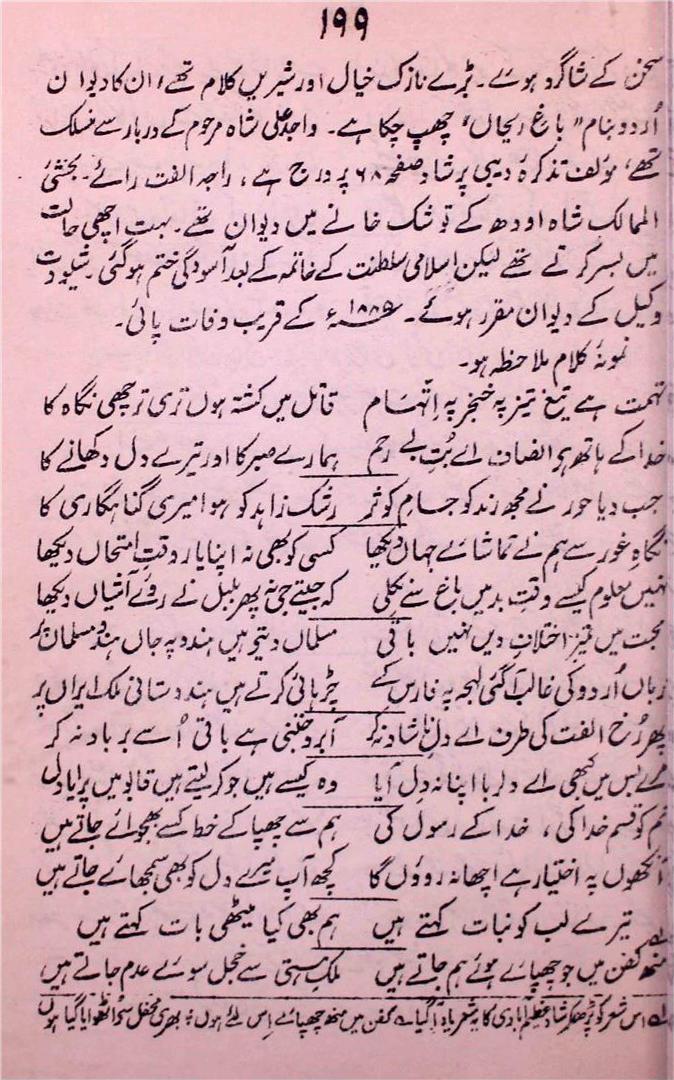 ۱۹۹
سخن کے شاگرد ہوئے۔ بڑے نازک خیال اور شیریں کلام تھے، ان کا دیوان
اُردو بنام "باغ ریحاں" چھپ چکا ہے۔ واجد علی شاہ مرحوم کے دربار سے منسلک
تھے، مؤلف تذکرۂ دیبی پرشاد صفحہ ۶۸ پر درج ہے، راجہ الفت رائے۔ بخشیٔ
الممالک شاہ اودھ کے توشک خانے میں دیوان تھے۔ بہت اچھی حالت
میں بسر کرتے تھے لیکن اسلامی سلطنت کے خاتمہ کے بعد آسودگی ختم ہوگئی۔
وکیل کے دیوان مقرر ہوئے۔ ۱۸۸۹ء کے قریب وفات پائی۔
نمونۂ کلام ملاحظہ ہو۔
تہمت ہے تیغ تیز پہ خنجر پہ اتہام قاتل میں کشتہ ہوں تری ترچھی نگاہ کا
خدا کے ہاتھ ہی انصاف اے بُتِ بے رحم ہمارے صبر کا اور تیرے دل دکھانے کا
جب دیا حور نے مجھ رند کو جام کوثر رشک زاہد کو ہوا میری گناہگاری کا
نگاہِ غور سے ہم نے تماشائے جہاں دیکھا کسی کو بھی نہ اپنا یار وقتِ امتحاں دیکھا
نہیں معلوم کیسے وقتِ بد میں باغ سے نکلی کہ جیتے جی نہ پھر بلبل نے روئے آشیاں دیکھا
محبت میں تمیز اختلافِ دیں نہیں باقی مسلماں دیتے ہیں ہندو پہ جاں ہندو مسلماں پر
زباں اُردو کی غالب آگئی لہجہ پہ فارس کے چڑھائی کرتے ہیں ہندوستانی ملک ایراں پر
پھر رُخ الفت کی طرف اے دلِ ناشاد نہ کر آبرو جتنی ہے باقی اُسے برباد نہ کر
مرے بس میں کبھی اے دلربا اپنا نہ دل آیا وہ کیسے ہیں جو کر لیتے ہیں قابو میں پرایا دل
تم کو قسم خدا کی، خدا کے رسول کی ہم سے چھپا کے خط کسے بھجوائے جاتے ہیں
آنکھوں پہ اختیار ہے اچھا نہ روؤں گا کچھ آپ میرے دل کو بھی سمجھائے جاتے ہیں
تیرے لب کو نبات کہتے ہیں ہم بھی کیا میٹھی بات کہتے ہیں
منھ کفن میں جو چھپائے ہوئے ہم جاتے ہیں ملک ہستی سے خجل سوئے عدم جاتے ہیں
اس شعر کو پڑھکر شاد عظیم آبادی کا یہ شعر یاد آگیا ؎ کفن میں منھ چھپائے اس لئے ہوں ؛ بھری محفل سے اٹھوایا گیا ہوں